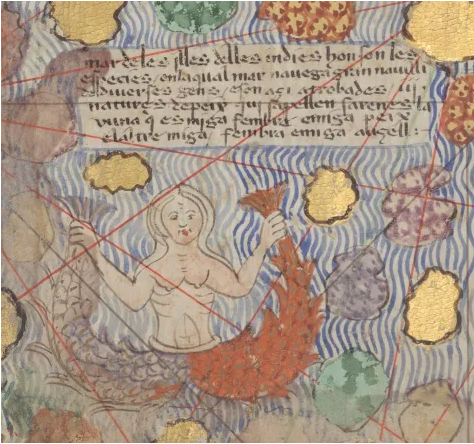 mar deles illes delles indies hon son les
especies en laqual mar navega gran navili
de diverses gens eson açi atrobades iii
natures de peix qui sapellen sarenes la
vuna q es miga fembra emiga peix
elaltre miga fembra emiga auçell :